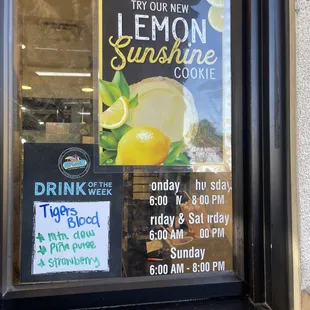 TRY OUR NEW
LEMON
Sunshine
COOKIE
DRINK OF THE WEEK
Tigers
Blood
mtn dew
Piña puree
strawberry
onday hu sday
6:00 8:00 PM
riday & Sat rday
6:00 AM 00 PM
Sunday
6:00 AM - 8:00 PM